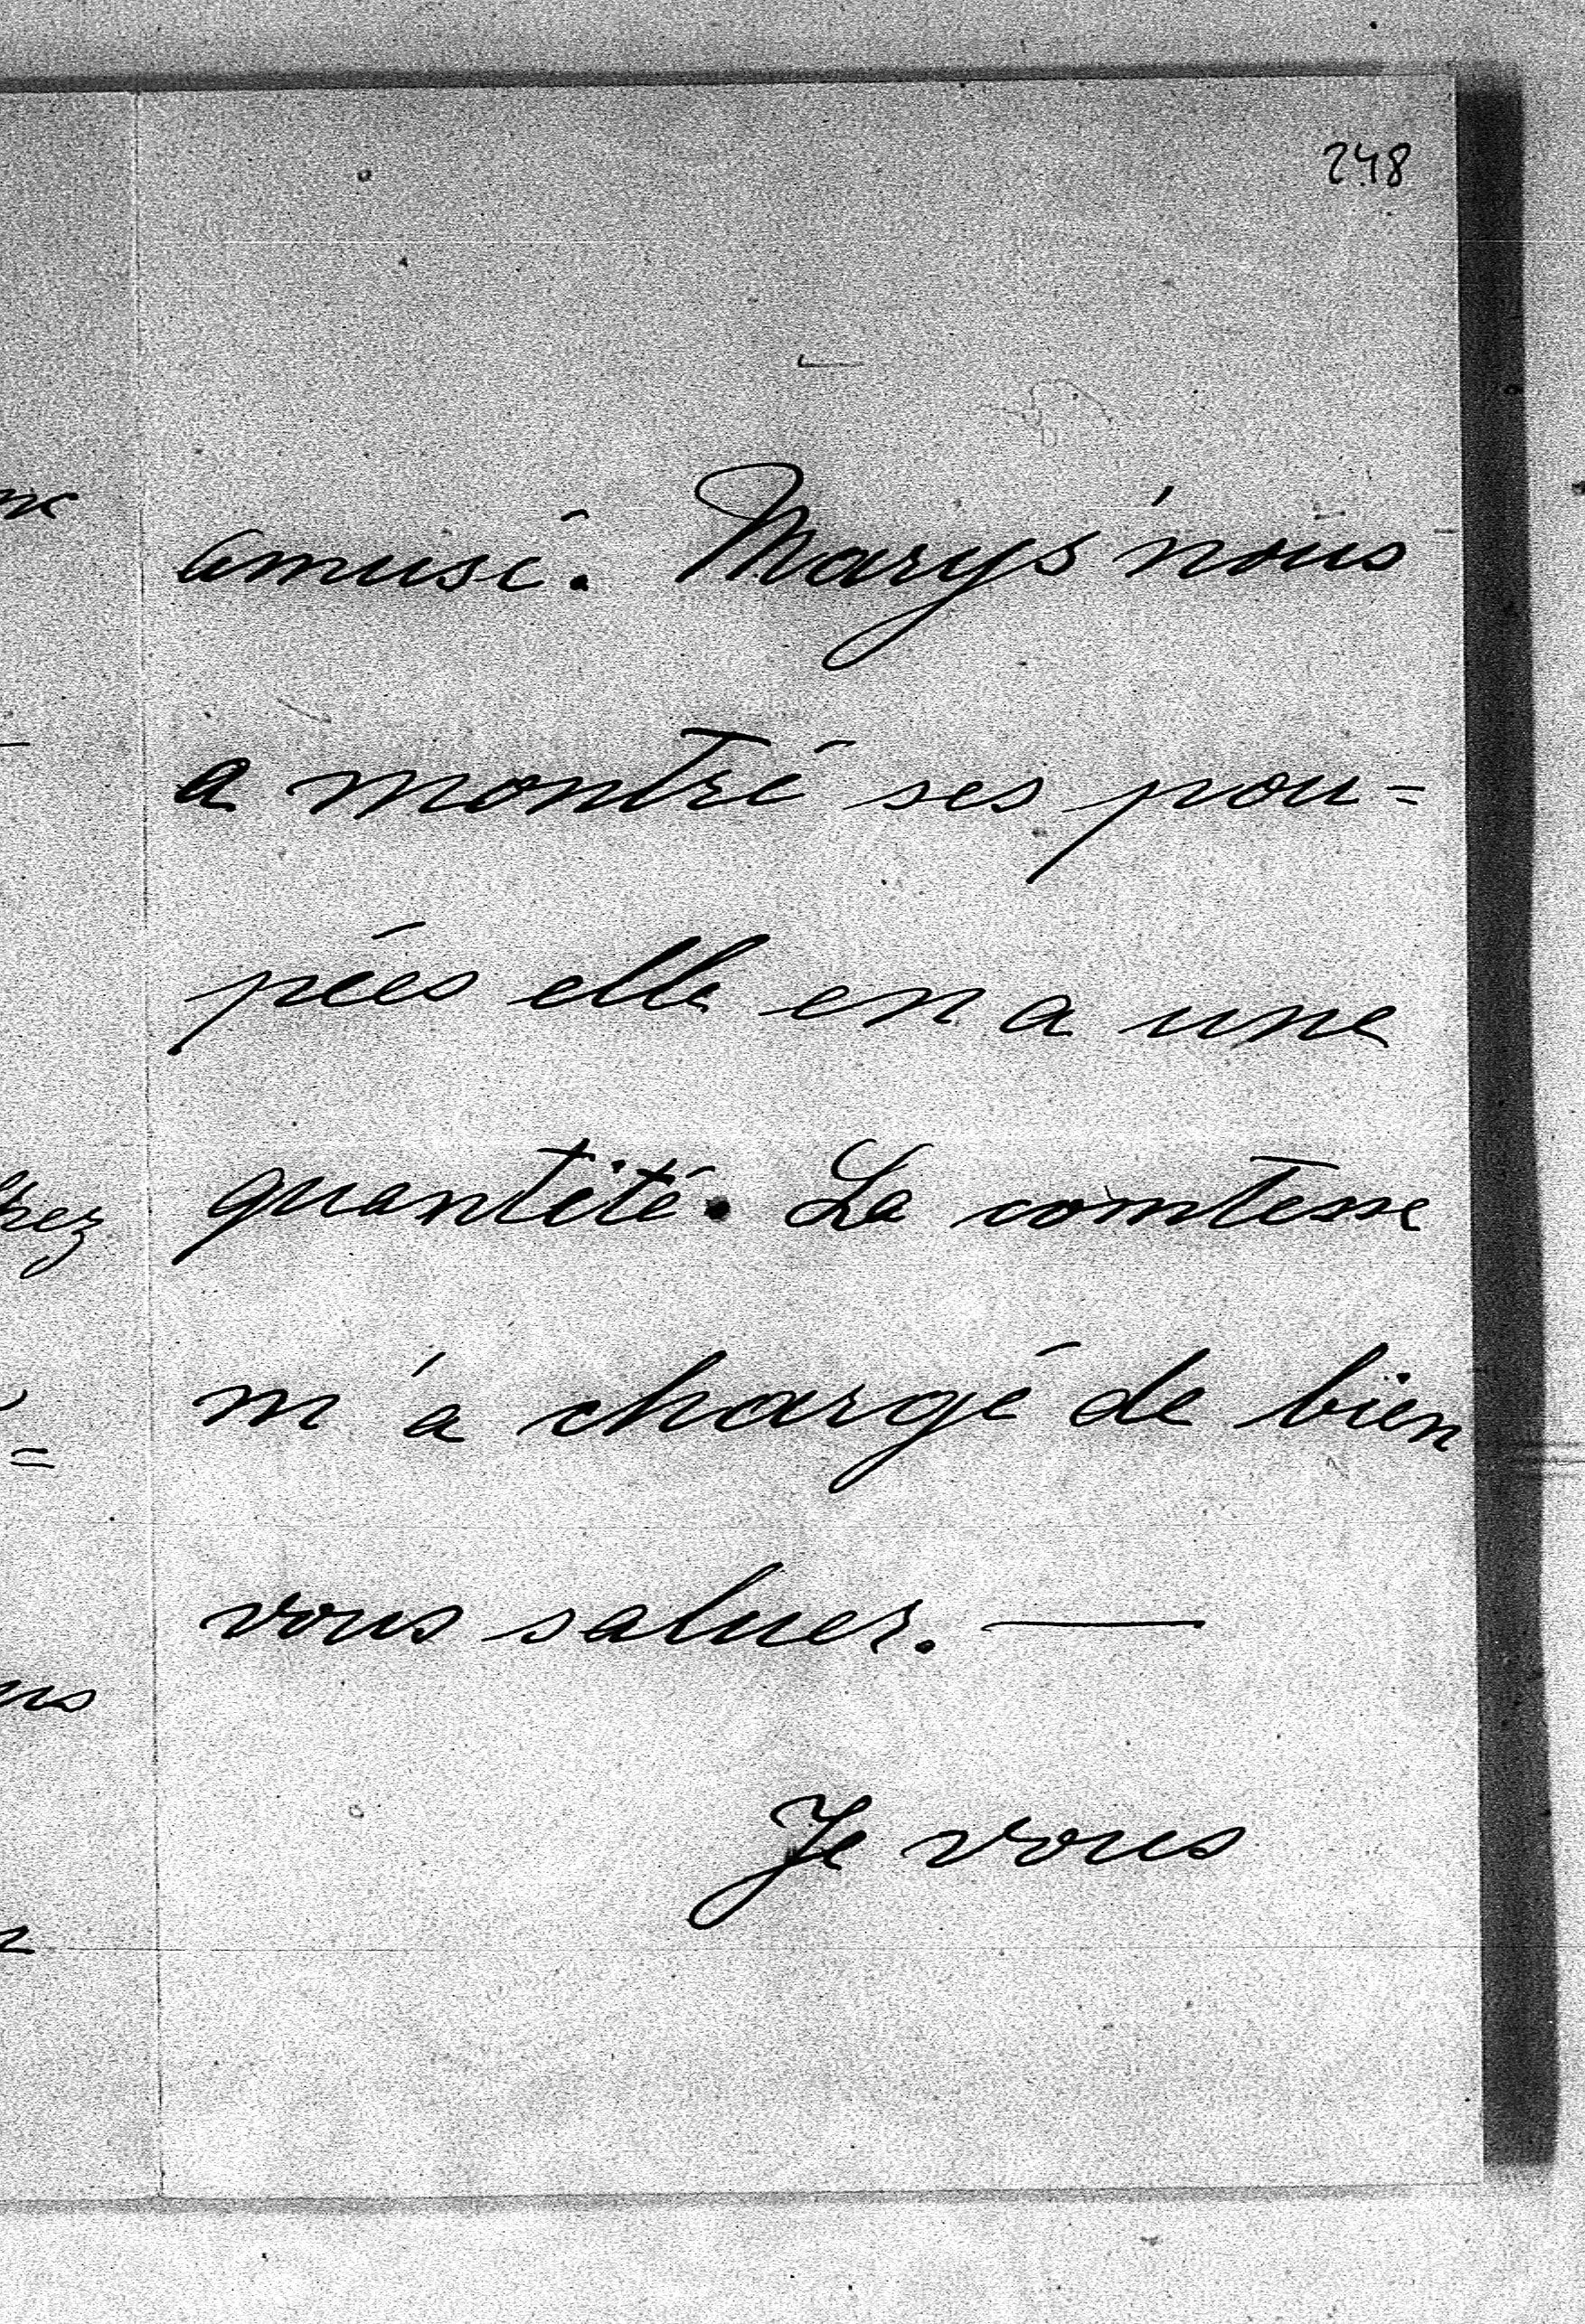 248
amusé. Marys' nous
a montré ses pou=
pées elle en a une
quantité. La comtesse
m'a chargé de bien
vous saluer. —
Je vous